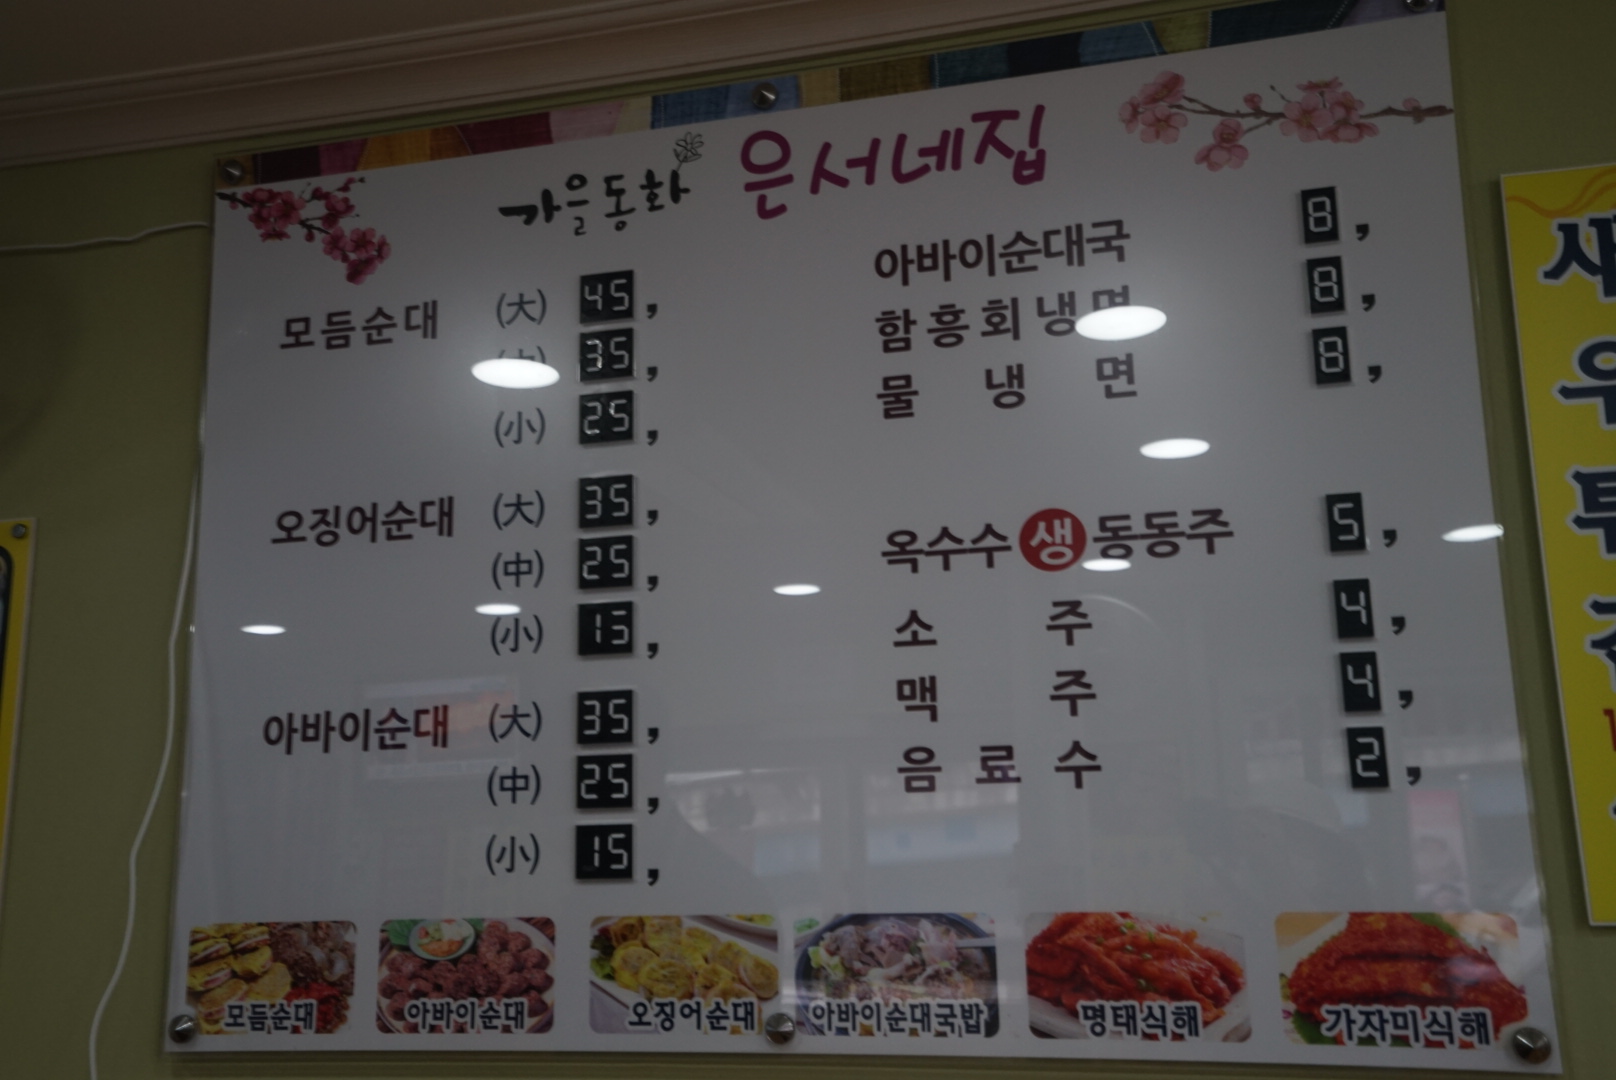 가을동화 은서네집
모듬순대 (大) 45,
35,
(小) 25,
오징어순대 (大) 35,
(中) 25,
(小) 15,
아바이순대 (大) 35,
(中) 25,
(小) 15,
아바이순대국 8,
함흥회냉면 8,
물냉면 8,
옥수수 생 동동주 5,
소주 4,
맥주 4,
음료수 2,
모듬순대
아바이순대
오징어순대
아바이순대국밥
명태식해
가자미식해
새
우
튀